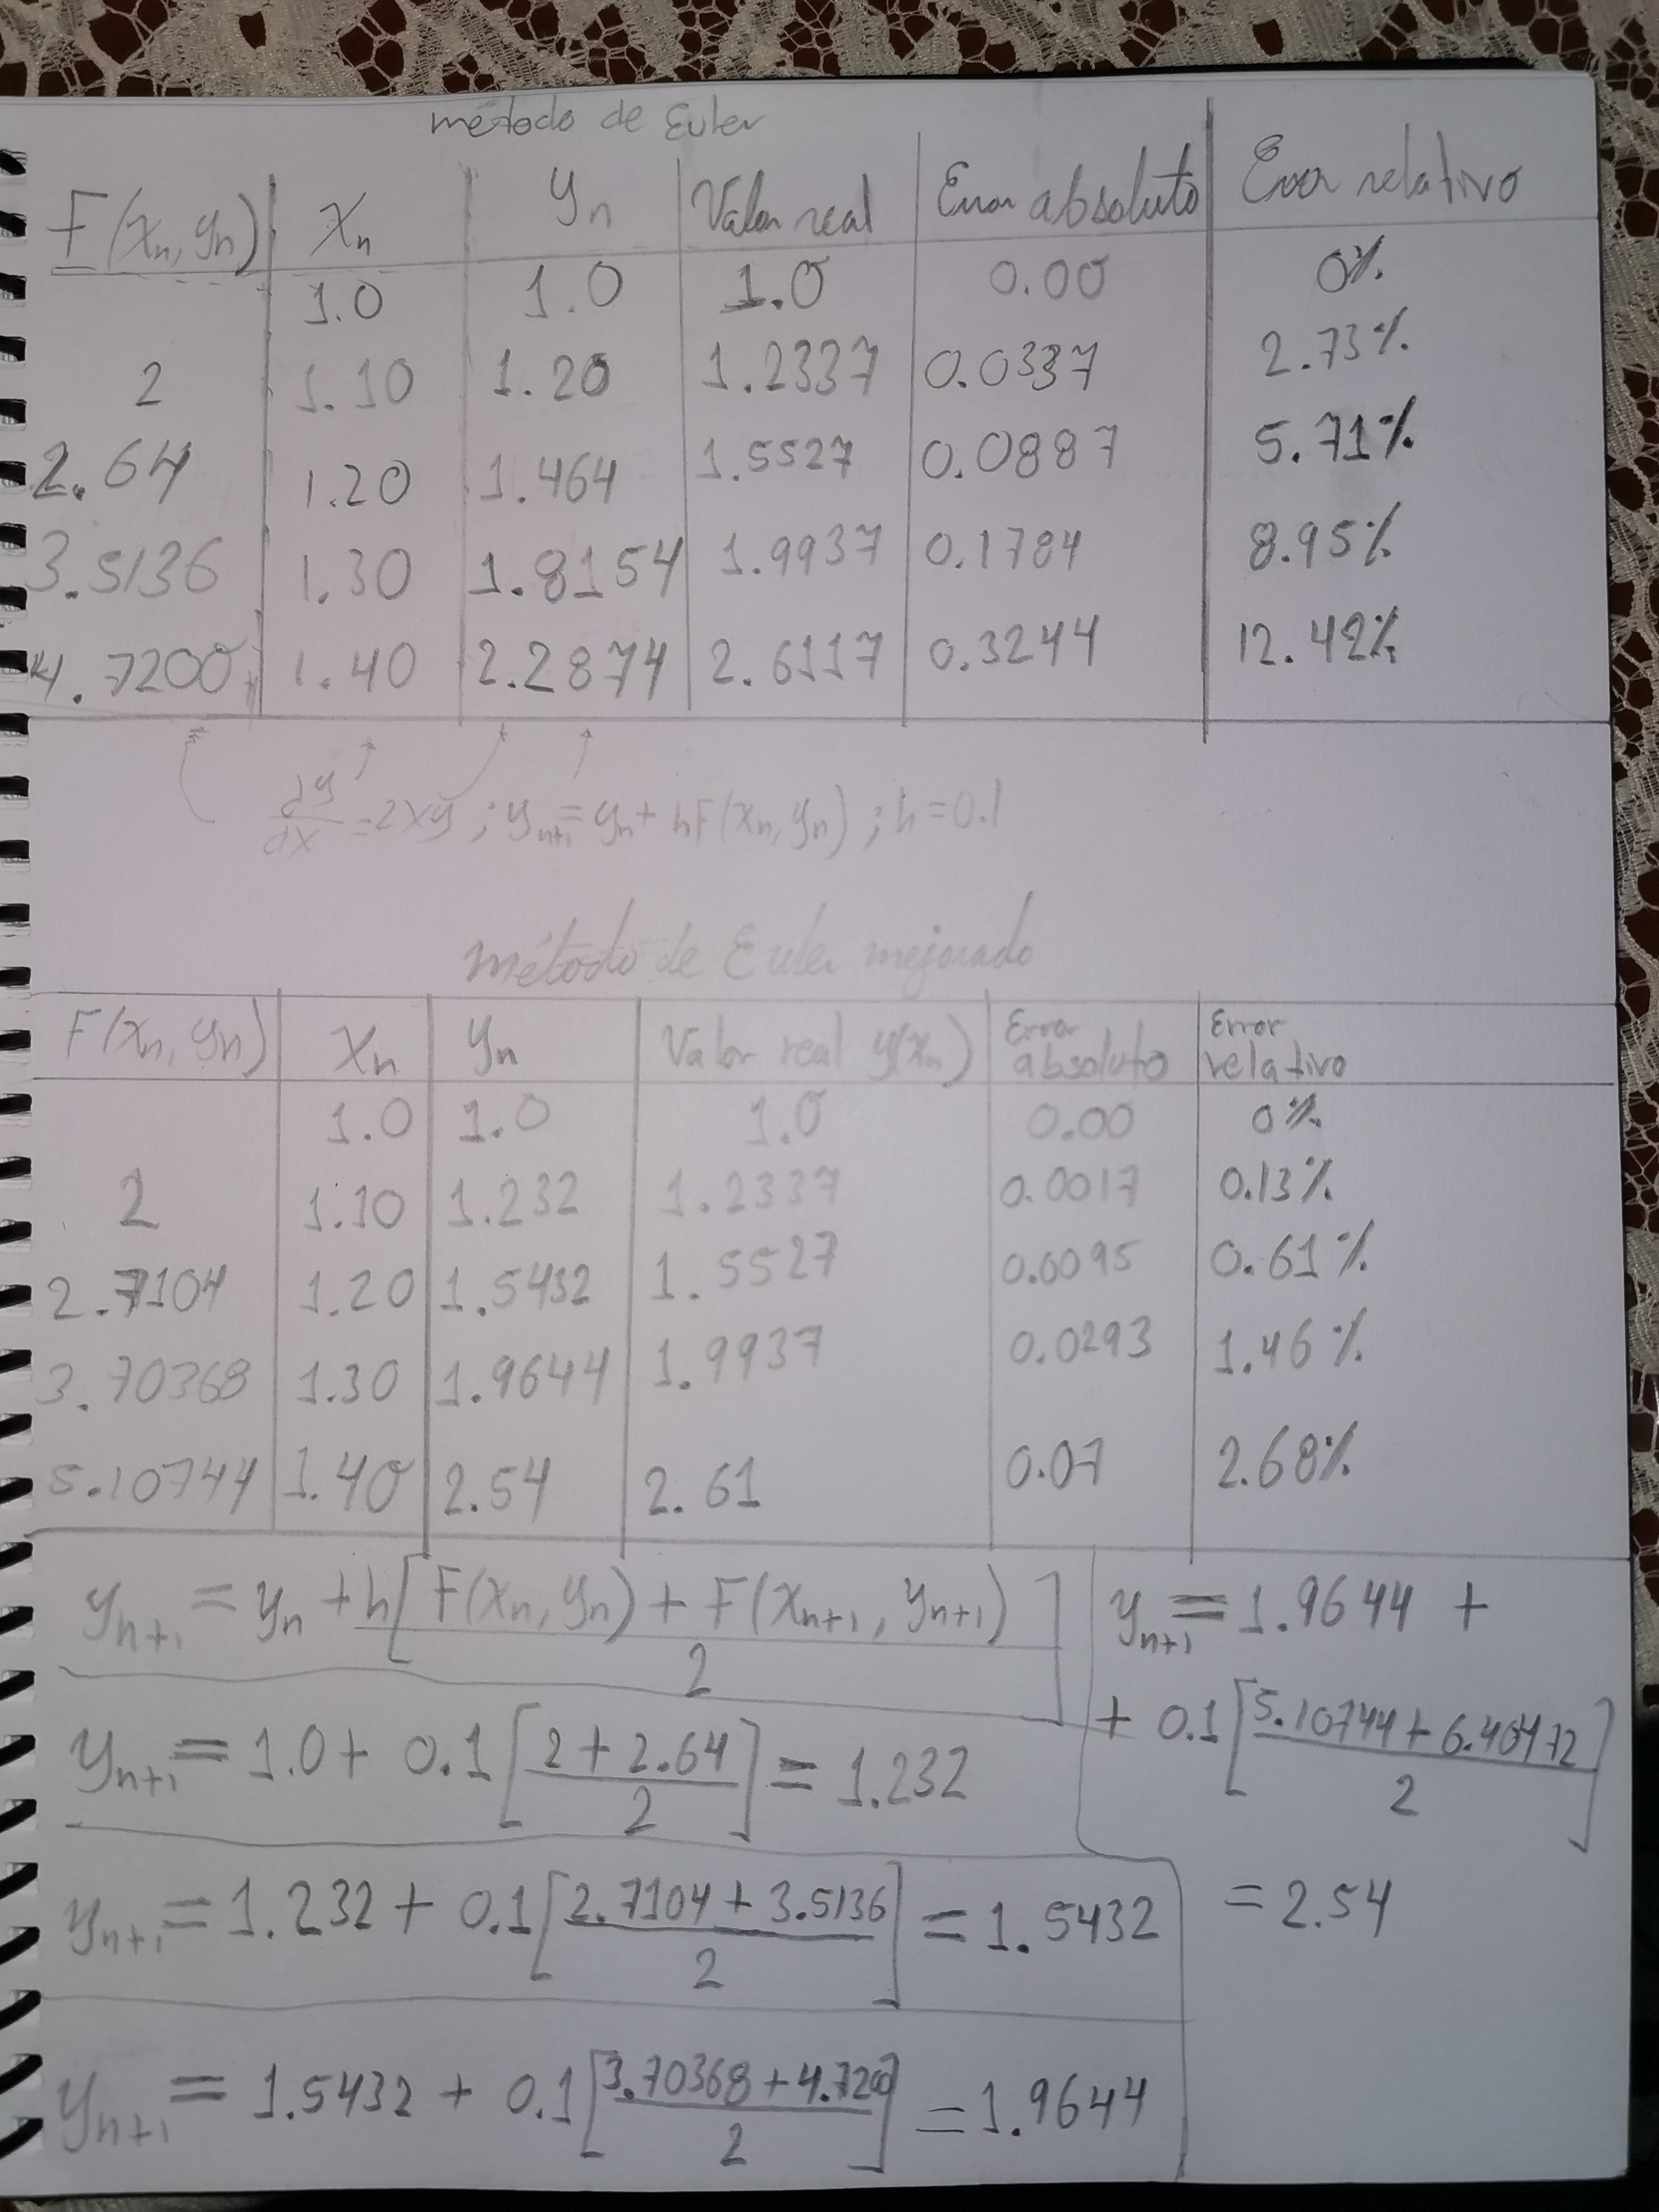 método de Euler
F(xₙ, yₙ) xₙ yₙ Valor real Error absoluto Error relativo
1.0 1.0 1.0 0.00 0%
2 1.10 1.20 1.2337 0.0337 2.73%
2.64 1.20 1.464 1.5527 0.0887 5.71%
3.5136 1.30 1.8154 1.9937 0.1784 8.95%
4.7200 1.40 2.2874 2.6117 0.3244 12.42%
dy/dx = 2xy ; yₙ₊₁ = yₙ + hF(xₙ, yₙ) ; h = 0.1
método de Euler mejorado
F(xₙ, yₙ) xₙ yₙ Valor real y(xₙ) Error absoluto Error relativo
1.0 1.0 1.0 0.00 0%
2 1.10 1.232 1.2337 0.0017 0.13%
2.7104 1.20 1.5432 1.5527 0.0095 0.61%
3.70368 1.30 1.9644 1.9937 0.0293 1.46%
5.10744 1.40 2.54 2.61 0.07 2.68%
yₙ₊₁ = yₙ + h[F(xₙ, yₙ) + F(xₙ₊₁, yₙ₊₁) / 2]
yₙ₊₁ = 1.0 + 0.1[2 + 2.64 / 2] = 1.232
yₙ₊₁ = 1.232 + 0.1[2.7104 + 3.5136 / 2] = 1.5432
yₙ₊₁ = 1.5432 + 0.1[3.70368 + 4.7200 / 2] = 1.9644
yₙ₊₁ = 1.9644 +
+ 0.1[5.10744 + 6.40472 / 2]
= 2.54